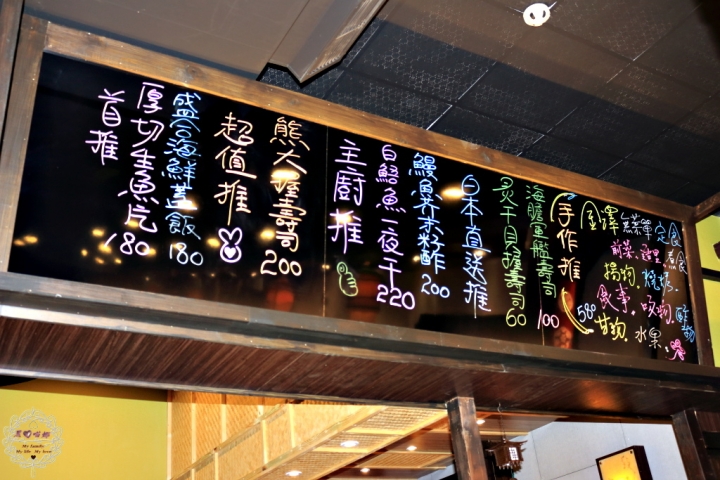 首推
厚切生魚片
180
盛合海鮮蓋飯
180
超值推
熊大握壽司
200
主廚推
白鯧魚一夜干
220
鰻魚芥末籽酢
200
日本直送推
炙干貝握壽司
60
海膽軍艦壽司
100
手作推
金澤
無菜單
定食
前菜
煮食
揚物
燒烤
食事
吸物
酢物
580
甘物
水果
My family
My life My love